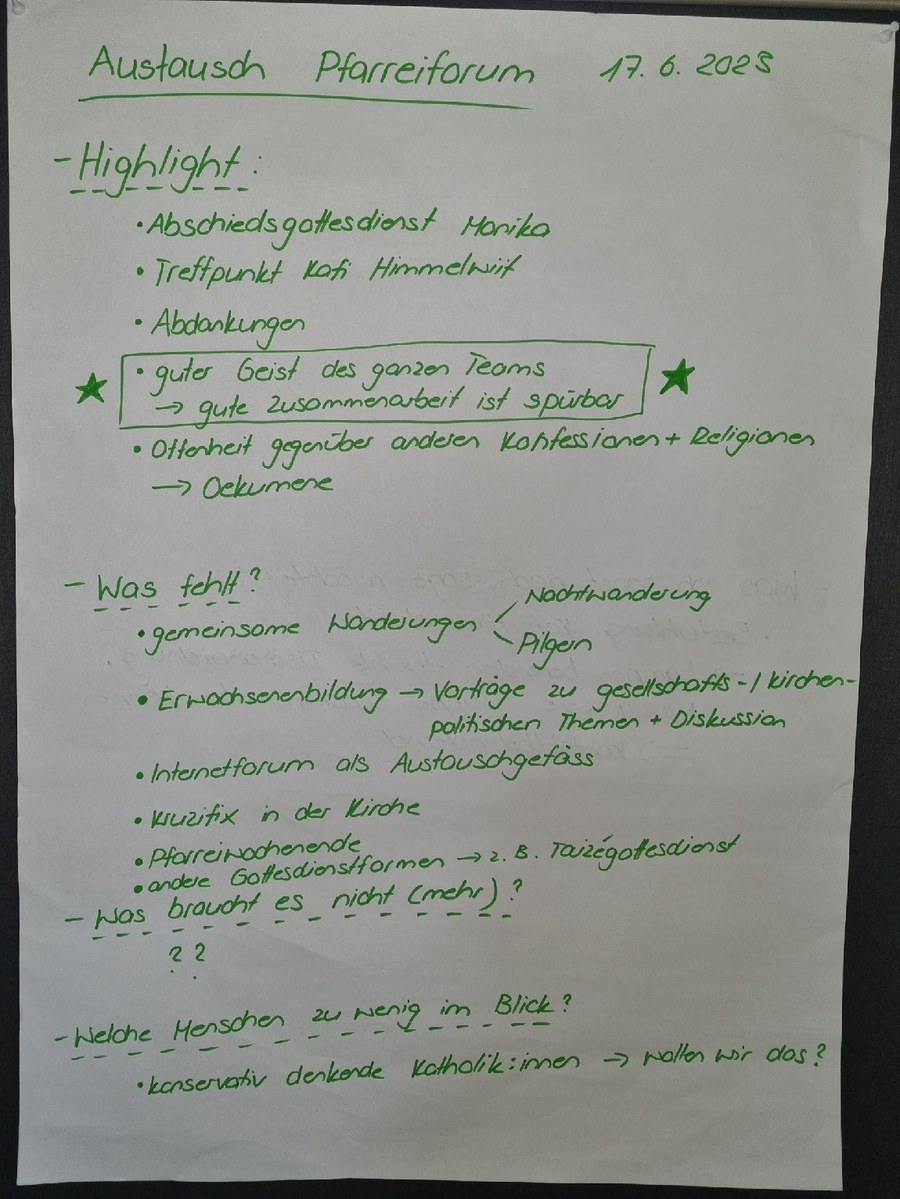 Austausch Pfarreiforum 17. 6. 2023
- Highlight:
• Abschiedsgottesdienst Monika
• Treffpunkt Kafi Himmelwiit
• Abdankungen
★ • guter Geist des ganzen Teams ★
→ gute Zusammenarbeit ist spürbar
• Offenheit gegenüber anderen Konfessionen + Religionen
→ Oekumene
- Was fehlt?
• gemeinsame Wanderungen
Nachtwanderung
Pilgern
• Erwachsenenbildung → Vorträge zu gesellschafts-/kirchen-
politischen Themen + Diskussion
• Internetforum als Austauschgefäss
• Kruzifix in der Kirche
• Pfarreiwochenende
• andere Gottesdienstformen → z. B. Taizégottesdienst
- Was braucht es nicht (mehr)?
? ?
- Welche Menschen zu wenig im Blick?
• konservativ denkende Katholik:innen → wollen wir das?